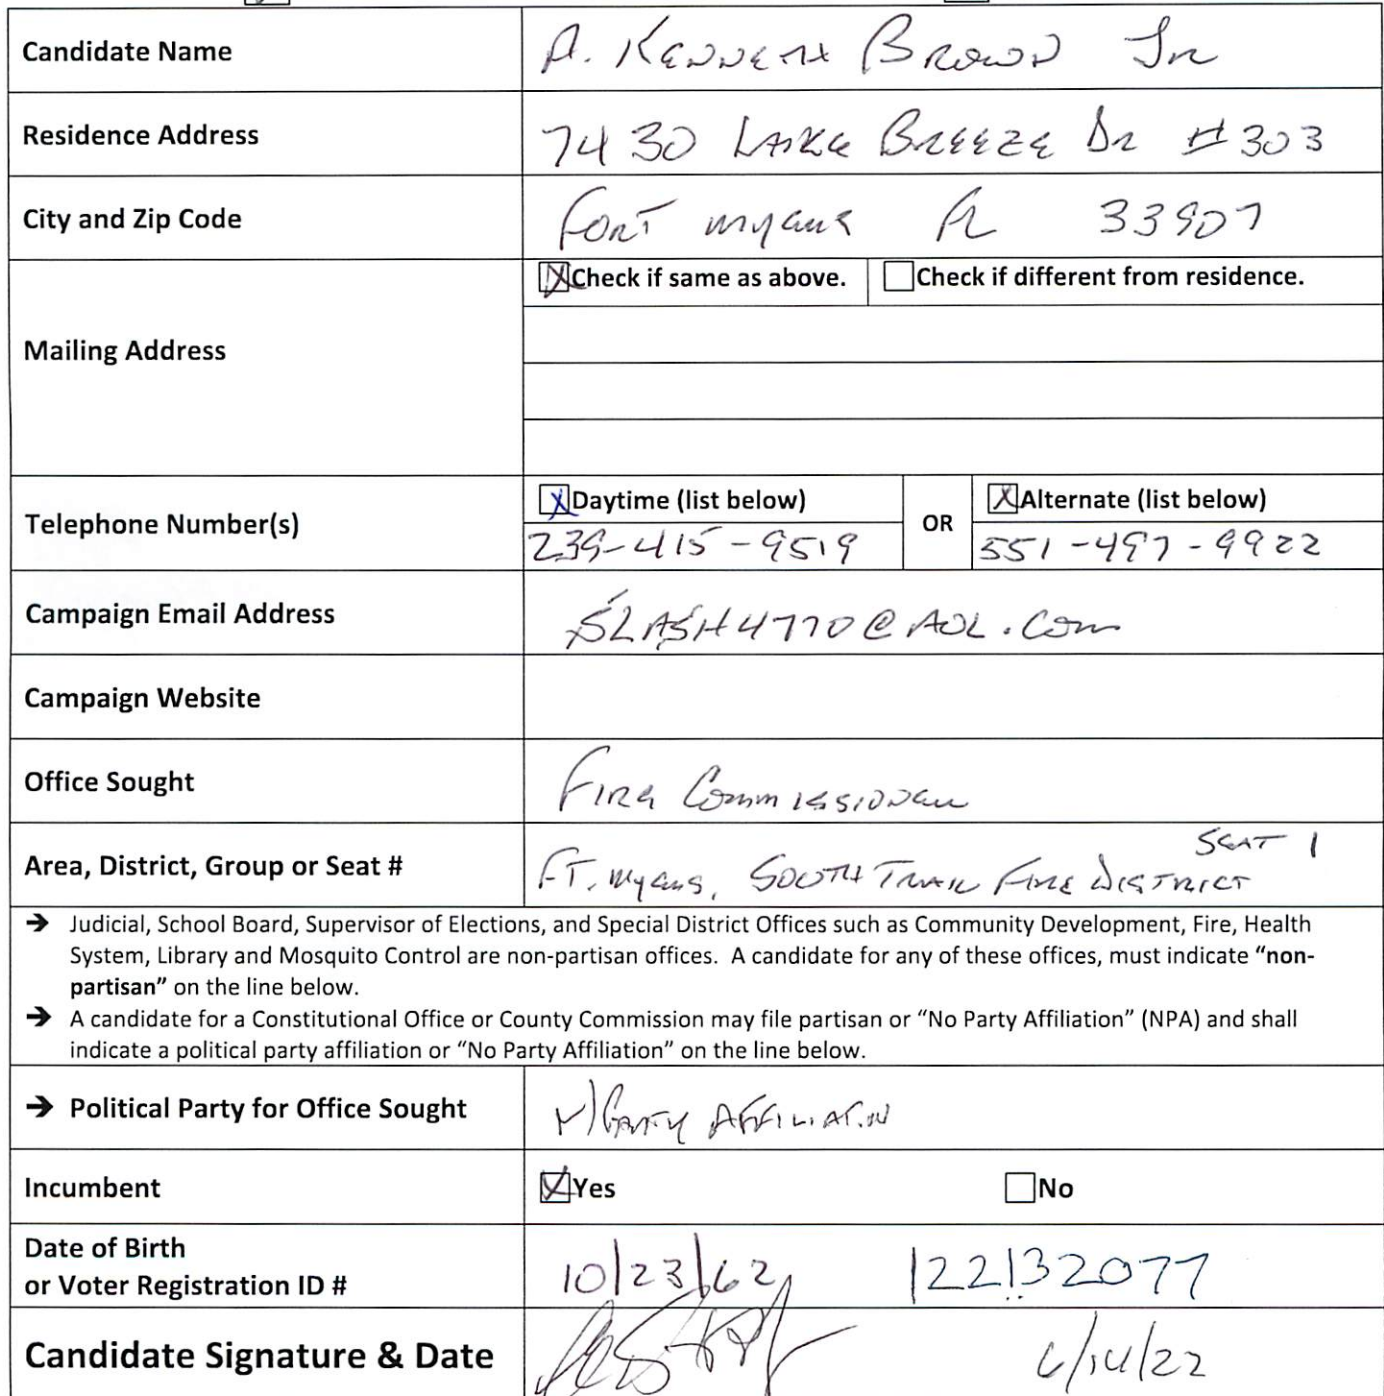 Candidate Name A. Kenneth Brown Jr
Residence Address 7430 Lake Breeze Dr #303
City and Zip Code Fort Myers FL 33907
☒Check if same as above. ☐Check if different from residence.
Mailing Address
☒Daytime (list below) OR ☒Alternate (list below)
Telephone Number(s) 239-415-9519 551-497-9922
Campaign Email Address SLASH4770@AOL.com
Campaign Website
Office Sought Fire Commissioner
Seat 1
Area, District, Group or Seat # FT. Myers, South Trail Fire District
➔ Judicial, School Board, Supervisor of Elections, and Special District Offices such as Community Development, Fire, Health
System, Library and Mosquito Control are non-partisan offices. A candidate for any of these offices, must indicate "non-
partisan" on the line below.
➔ A candidate for a Constitutional Office or County Commission may file partisan or "No Party Affiliation" (NPA) and shall
indicate a political party affiliation or "No Party Affiliation" on the line below.
➔ Political Party for Office Sought Party Affiliation
Incumbent ☒Yes ☐No
Date of Birth
or Voter Registration ID # 10/23/62 122132077
Candidate Signature & Date 6/14/22